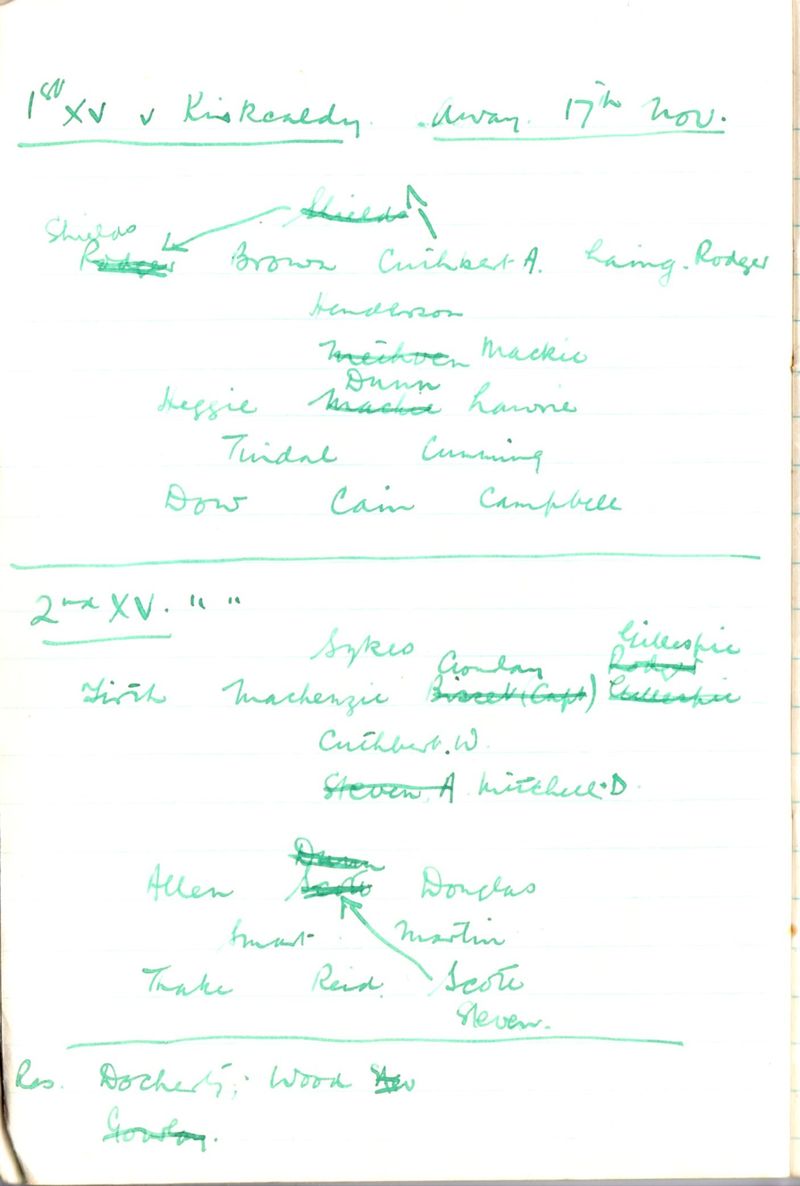 1st XV v Kirkcaldy. Away. 17th Nov.
Shields
Shields
Rodger Brown Cuthbert A. Laing. Rodger
Henderson
Methven Mackie
Dunn
Heggie Mackie Lawrie
Tindal Cumming
Dow Cain Campbell
2nd XV. " "
Gillespie
Sykes Gourlay Rodger
Firth Mackenzie Bisset (Capt) Gillespie
Cuthbert. W.
Steven, A Mitchell. D
Dunn
Allen Scott Douglas
Smart Martin
Thake Reid. Scott
Steven.
Res. Docherty; Wood
Gourlay.